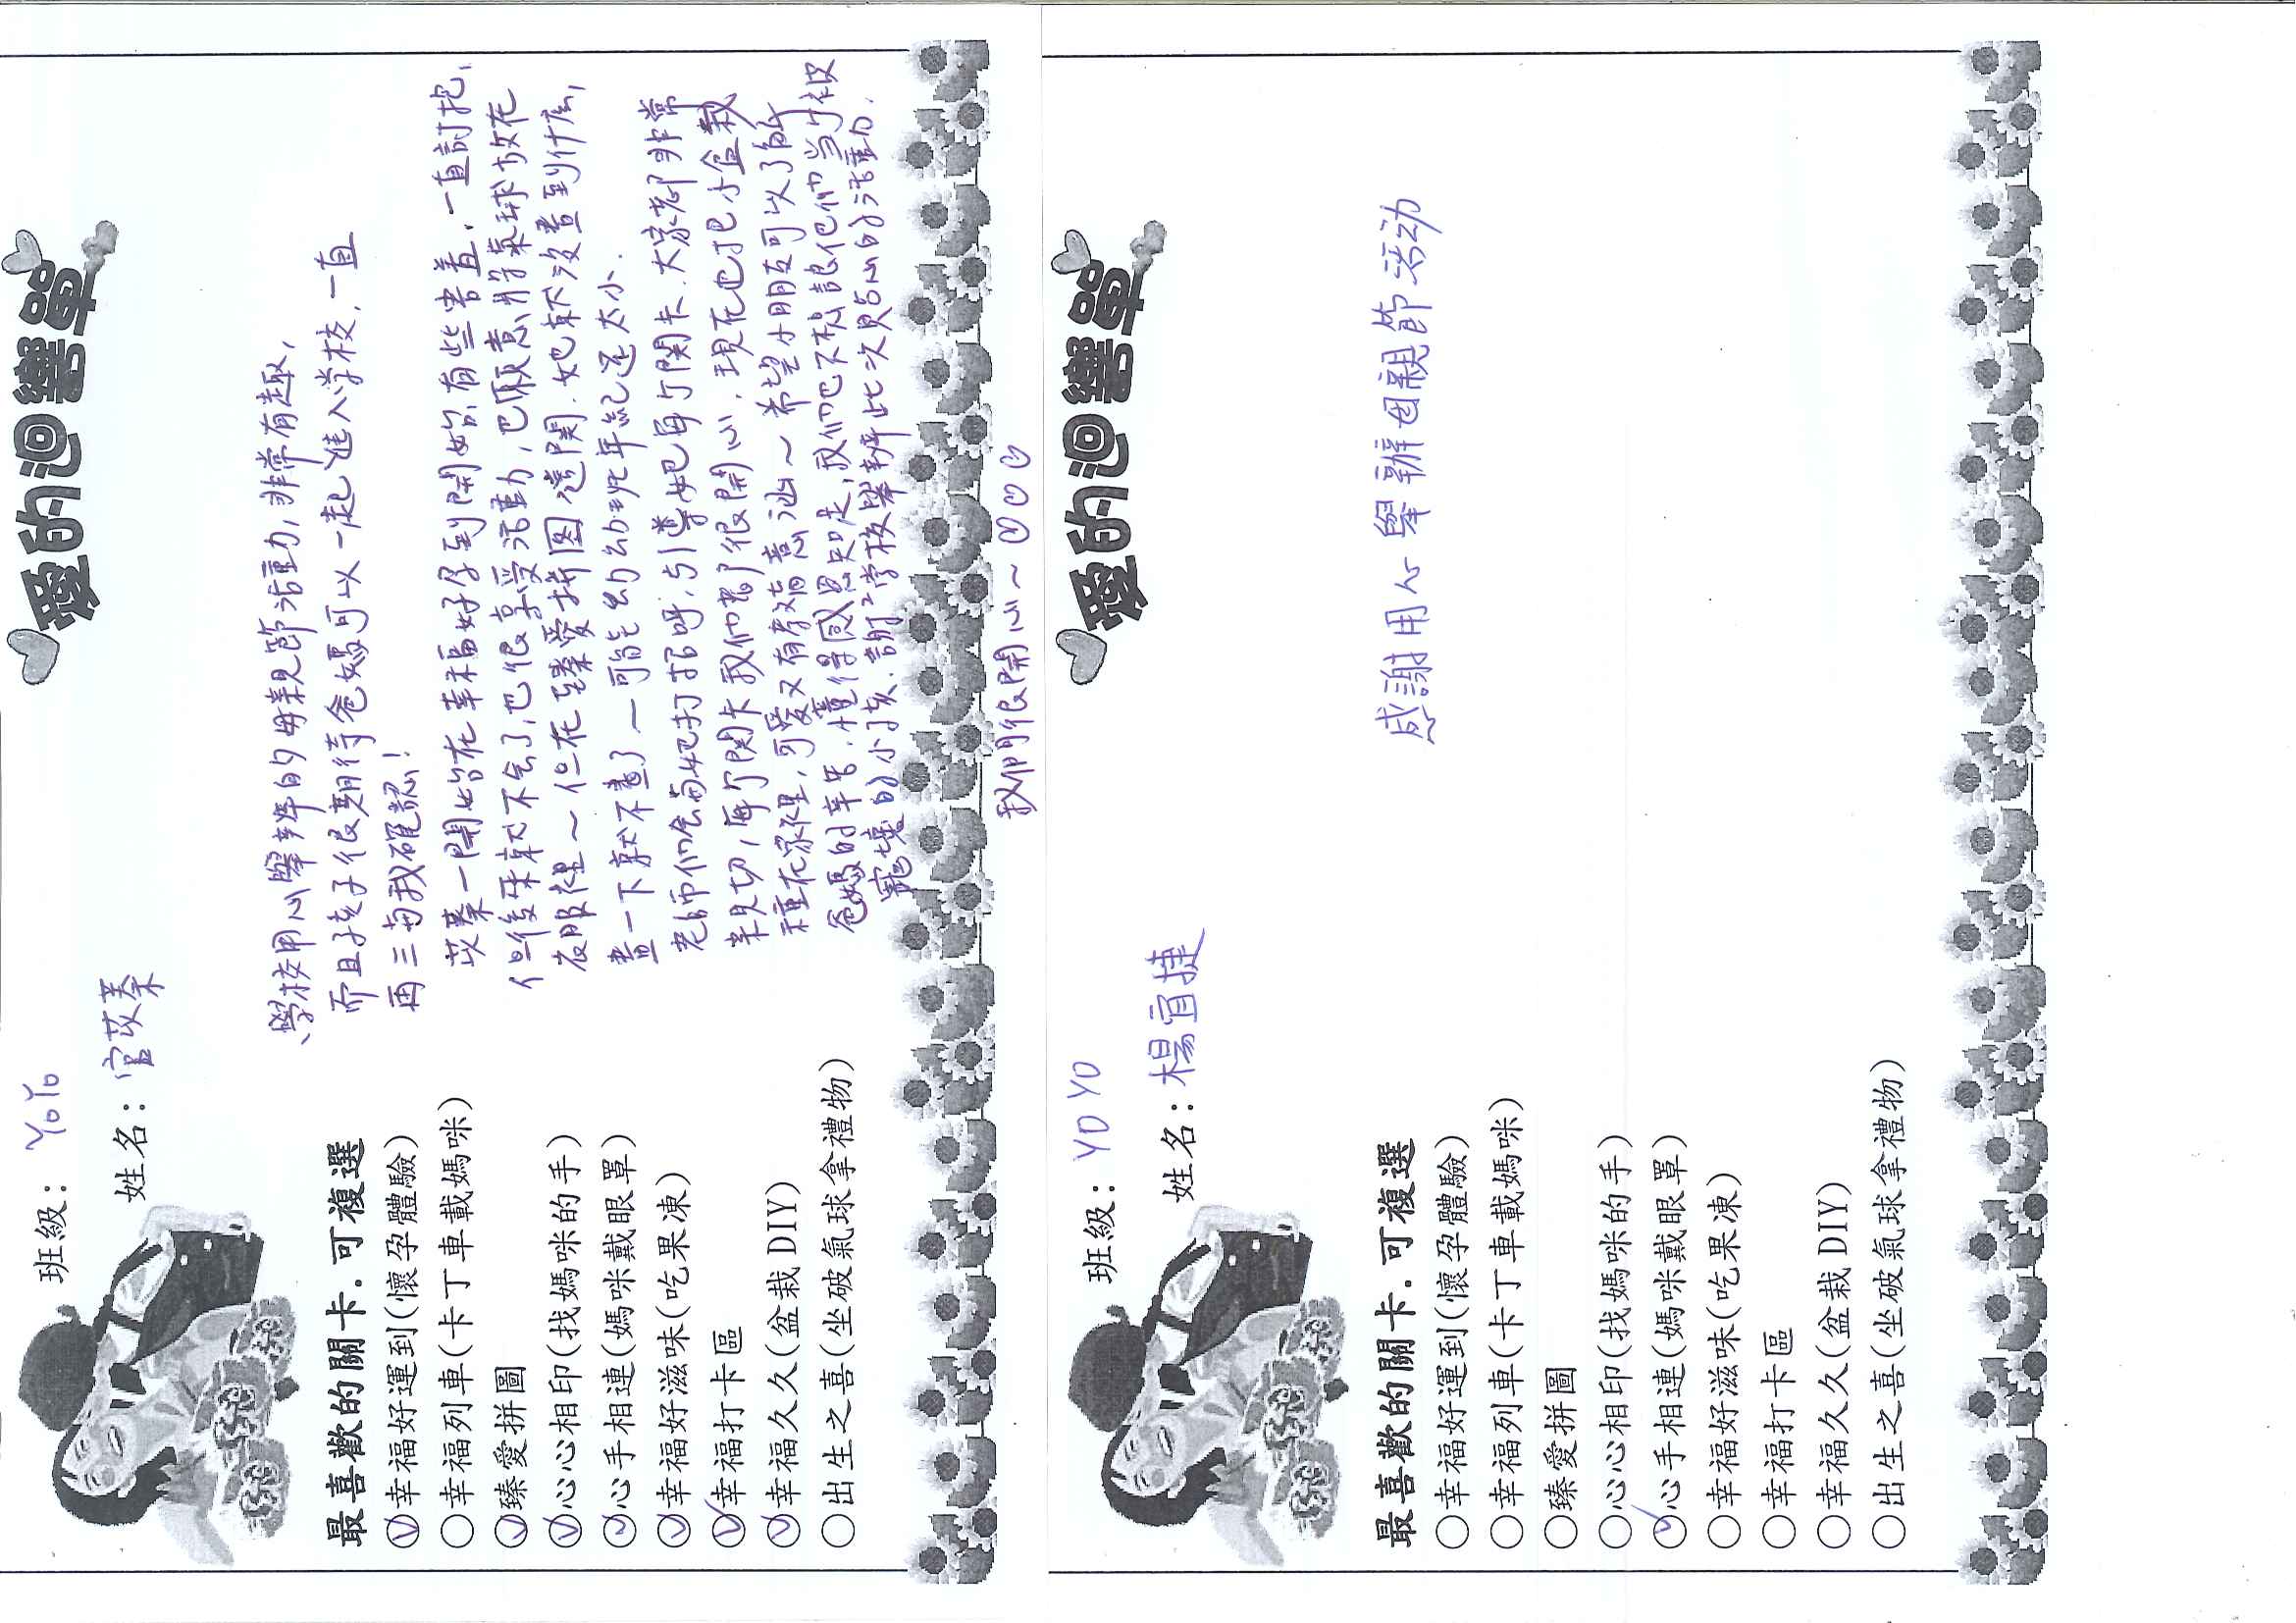 愛的迴響單
班級：YoYo
姓名：官苡蓁
最喜歡的關卡．可複選
幸福好運到(懷孕體驗)
幸福列車(卡丁車載媽咪)
臻愛拼圖
心心相印(找媽咪的手)
心手相連(媽咪戴眼罩)
幸福好滋味(吃果凍)
幸福打卡區
幸福久久(盆栽 DIY)
出生之喜(坐破氣球拿禮物)
學校用心舉辦的母親節活動，非常有趣，
而且孩子很期待爸媽可以一起進入学校，一直
再三与我確認！
苡蓁一開始在幸福好孕到開始有些害羞，一直討抱，
但後來就不会了，也很享受活動，也願意將氣球放在
衣服裡～但在臻愛拼图這關，她就沒畫到什広，
畫一下就不畫了～可能幼幼班年紀还太小．
老師們会与她打招呼，引導她每個關卡．大家都非常
親切，每个關卡我们都很開心，現在也把小盆栽
種在家裡，可愛又有意～希望小朋友可以了解
爸媽的辛苦，懂得感恩知足，我们也不想讓他们当个被
寵壞的小孩．謝謝学校舉辦此次貼心的活動．
我們很開心～♡♡♡
愛的迴響單
班級：YOYO
姓名：楊宜捷
最喜歡的關卡．可複選
幸福好運到(懷孕體驗)
幸福列車(卡丁車載媽咪)
臻愛拼圖
心心相印(找媽咪的手)
心手相連(媽咪戴眼罩)
幸福好滋味(吃果凍)
幸福打卡區
幸福久久(盆栽 DIY)
出生之喜(坐破氣球拿禮物)
感謝用心舉辦母親節活动